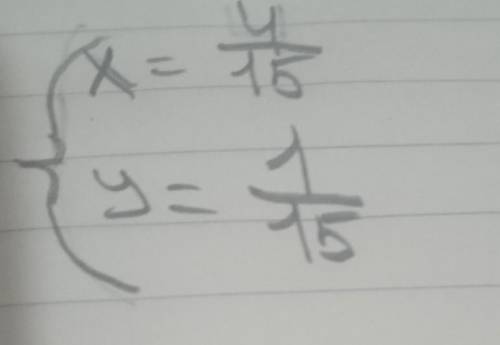 x = 4/15
y = 1/15